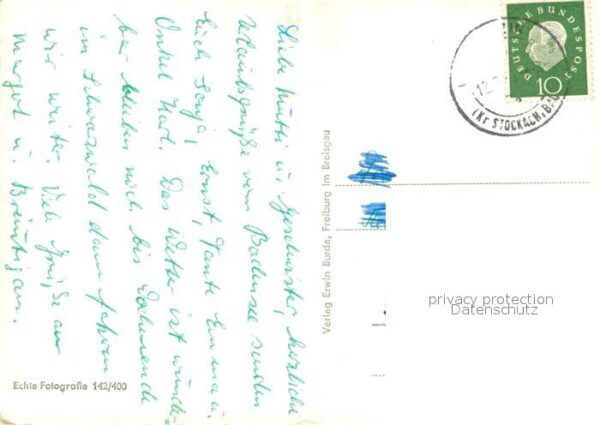 Liebe Mutti u. Geschwister, herzliche
Urlaubsgrüße vom Bodensee senden
Euch Sonja, Ernst, Tante Emma u.
Onkel Karl. Das Wetter ist wunder-
bar bleiben noch bis Wochenende
im Schwarzwald dann fahren
wir weiter. Viele Grüße an
Margot u. Bräutigam.
Echte Fotografie 142/400
Verlag Erwin Burda, Freiburg im Breisgau
DEUTSCHE BUNDESPOST
10
(Kr STOCKACH, B
privacy protection
Datenschutz